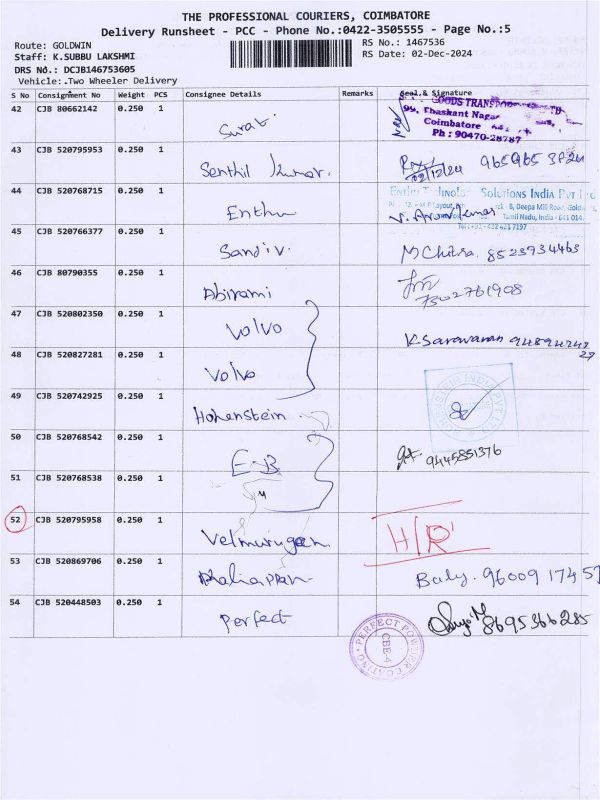 THE PROFESSIONAL COURIERS, COIMBATORE
Delivery Runsheet - PCC - Phone No.:0422-3505555 - Page No.:5
Route: GOLDWIN
RS No.: 1467536
Staff: K.SUBBU LAKSHMI
RS Date: 02-Dec-2024
DRS No.: DCJB146753605
Vehicle:.Two Wheeler Delivery
S No Consignment No Weight PCS Consignee Details Remarks Seal & Signature
42 CJB 80662142 0.250 1 Surat GOODS TRANSPO
99, Bhaskant Nagar
Coimbatore
Ph : 90470-28787
43 CJB 520795953 0.250 1 Senthil Kumar. 02/12/24
44 CJB 520768715 0.250 1 Enthu Solutions India Pvt
Deepa Mill Road,
Tamil Nadu, India - 641 014.
45 CJB 520766377 0.250 1 Sandiv. M Chitra. 8523934463
46 CJB 80790355 0.250 1 Abirami 7302761908
47 CJB 520802350 0.250 1 Volvo K. Saravanan
48 CJB 520827281 0.250 1 Volvo
49 CJB 520742925 0.250 1 Hohenstein
50 CJB 520768542 0.250 1 E-B 9445851376
51 CJB 520768538 0.250 1 "
52 CJB 520795958 0.250 1 Velmurugan H/R
53 CJB 520869706 0.250 1 Kaliappan Baly. 96009 17457
54 CJB 520448503 0.250 1 Perfect 8695366285
PERFECT POWDER COATING
CBE-4